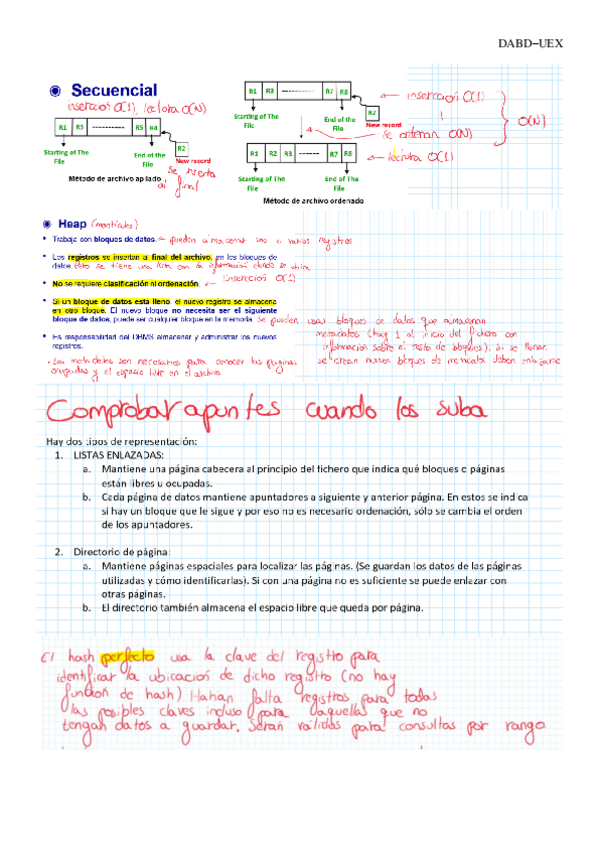 DABD-UEX
Secuencial
inserccion O(1), lectura O(N)
R1 R3 R5 R4
R2
Starting of The File
End of the File
New record
se inserta al final
Método de archivo apilado
R1 R3 R7 R8
inserccion O(1)
Starting of The File
End of the File
R2
New record
se ordenan O(N)
O(N)
R1 R2 R3 R7 R8
lectura O(1)
Starting of The File
End of The File
Método de archivo ordenado
Heap (montículos)
Trabaja con bloques de datos. pueden almacenar uno o varios registros
Los registros se insertan al final del archivo, en los bloques de
datos. Esto se tiene una lista con la información donde se ubica
No se requiere clasificación ni ordenación. inserccion O(1)
Si un bloque de datos está lleno, el nuevo registro se almacena
en otro bloque. El nuevo bloque no necesita ser el siguiente
bloque de datos, puede ser cualquier bloque en la memoria.
Es responsabilidad del DBMS almacenar y administrar los nuevos
registros.
se pueden usar bloques de datos que almacenan
metadatos (hay 1 al inicio del fichero con
información sobre el resto de bloques). Si se llenan
se crean nuevos bloques de metadatos deben enlazarse
Los metadatos son necesarios para conocer las paginas
ocupadas y el espacio libre en el archivo
Comprobar apuntes cuando los suba
Hay dos tipos de representación:
1. LISTAS ENLAZADAS:
a. Mantiene una página cabecera al principio del fichero que indica qué bloques o páginas
están libres u ocupadas.
b. Cada página de datos mantiene apuntadores a siguiente y anterior página. En estos se indica
si hay un bloque que le sigue y por eso no es necesario ordenación, sólo se cambia el orden
de los apuntadores.
2. Directorio de página:
a. Mantiene páginas espaciales para localizar las páginas. (Se guardan los datos de las páginas
utilizadas y cómo identificarlas). Si con una página no es suficiente se puede enlazar con
otras páginas.
b. El directorio también almacena el espacio libre que queda por página.
El hash perfecto usa la clave del registro para
identificar la ubicación de dicho registro (no hay
función de hash) Harían falta registros para todas
las posibles claves incluso para aquellas que no
tengan datos a guardar. Serán válidas para consultas por rango